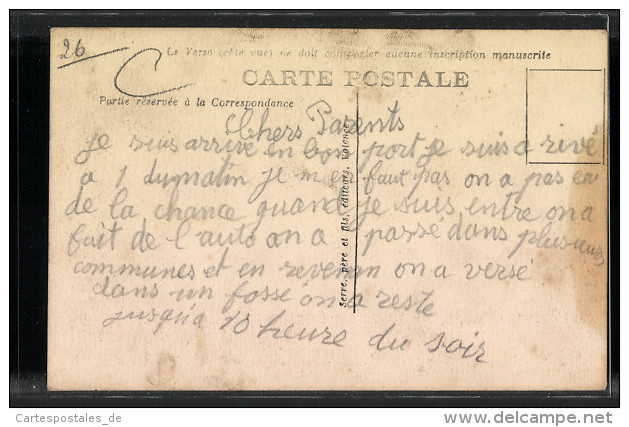 26
Le Verso (côté vue) ne doit comporter aucune inscription manuscrite
CARTE POSTALE
Partie réservée à la Correspondance
Chers Parents
Je suis arrivé en bon port je suis arivé
a 1 du matin je m en faut pas on a pas eu
de la chance quand je suis entre on a
fait de l'auto on a passé dans plusieurs
communes et en revenan on a versé
dans un fossé on a reste
jusqua 10 heure du soir
Serre, père et fils, éditeurs, Valence
Cartespostales_de
www.delcampe.net